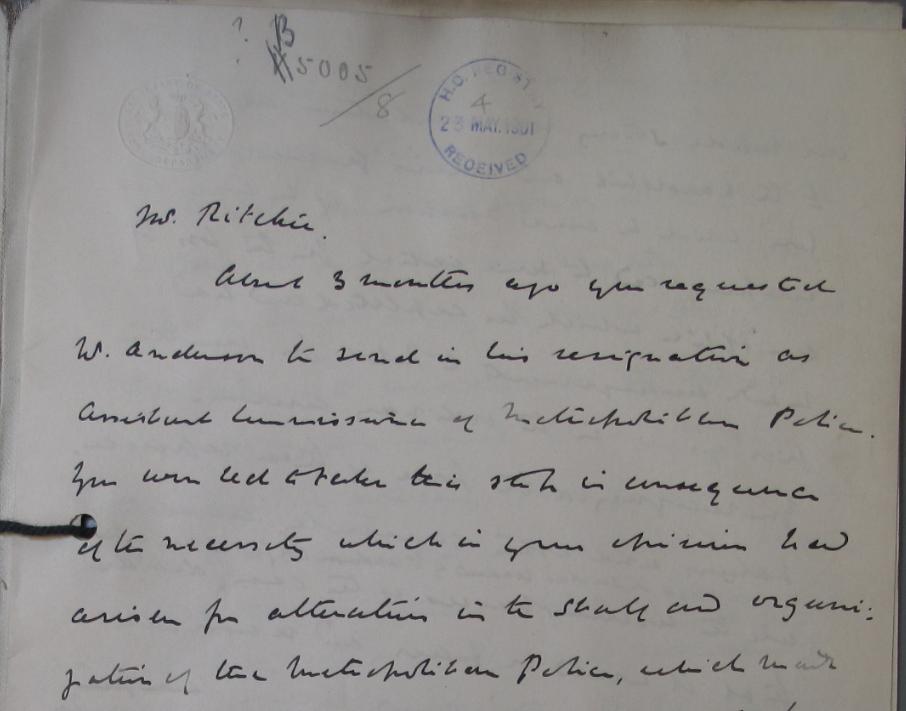 ? B
5005
/8
H.O. REGISTRY
4
23 MAY. 1901
RECEIVED
Mr. Ritchie.
About 3 months ago you requested
Mr. Anderson to send in his resignation as
Assistant Commissioner of Metropolitan Police.
You were led to take this step in consequence
of the necessity which in your opinion had
arisen for alteration in the staff and organi-
zation of the Metropolitan Police, which made